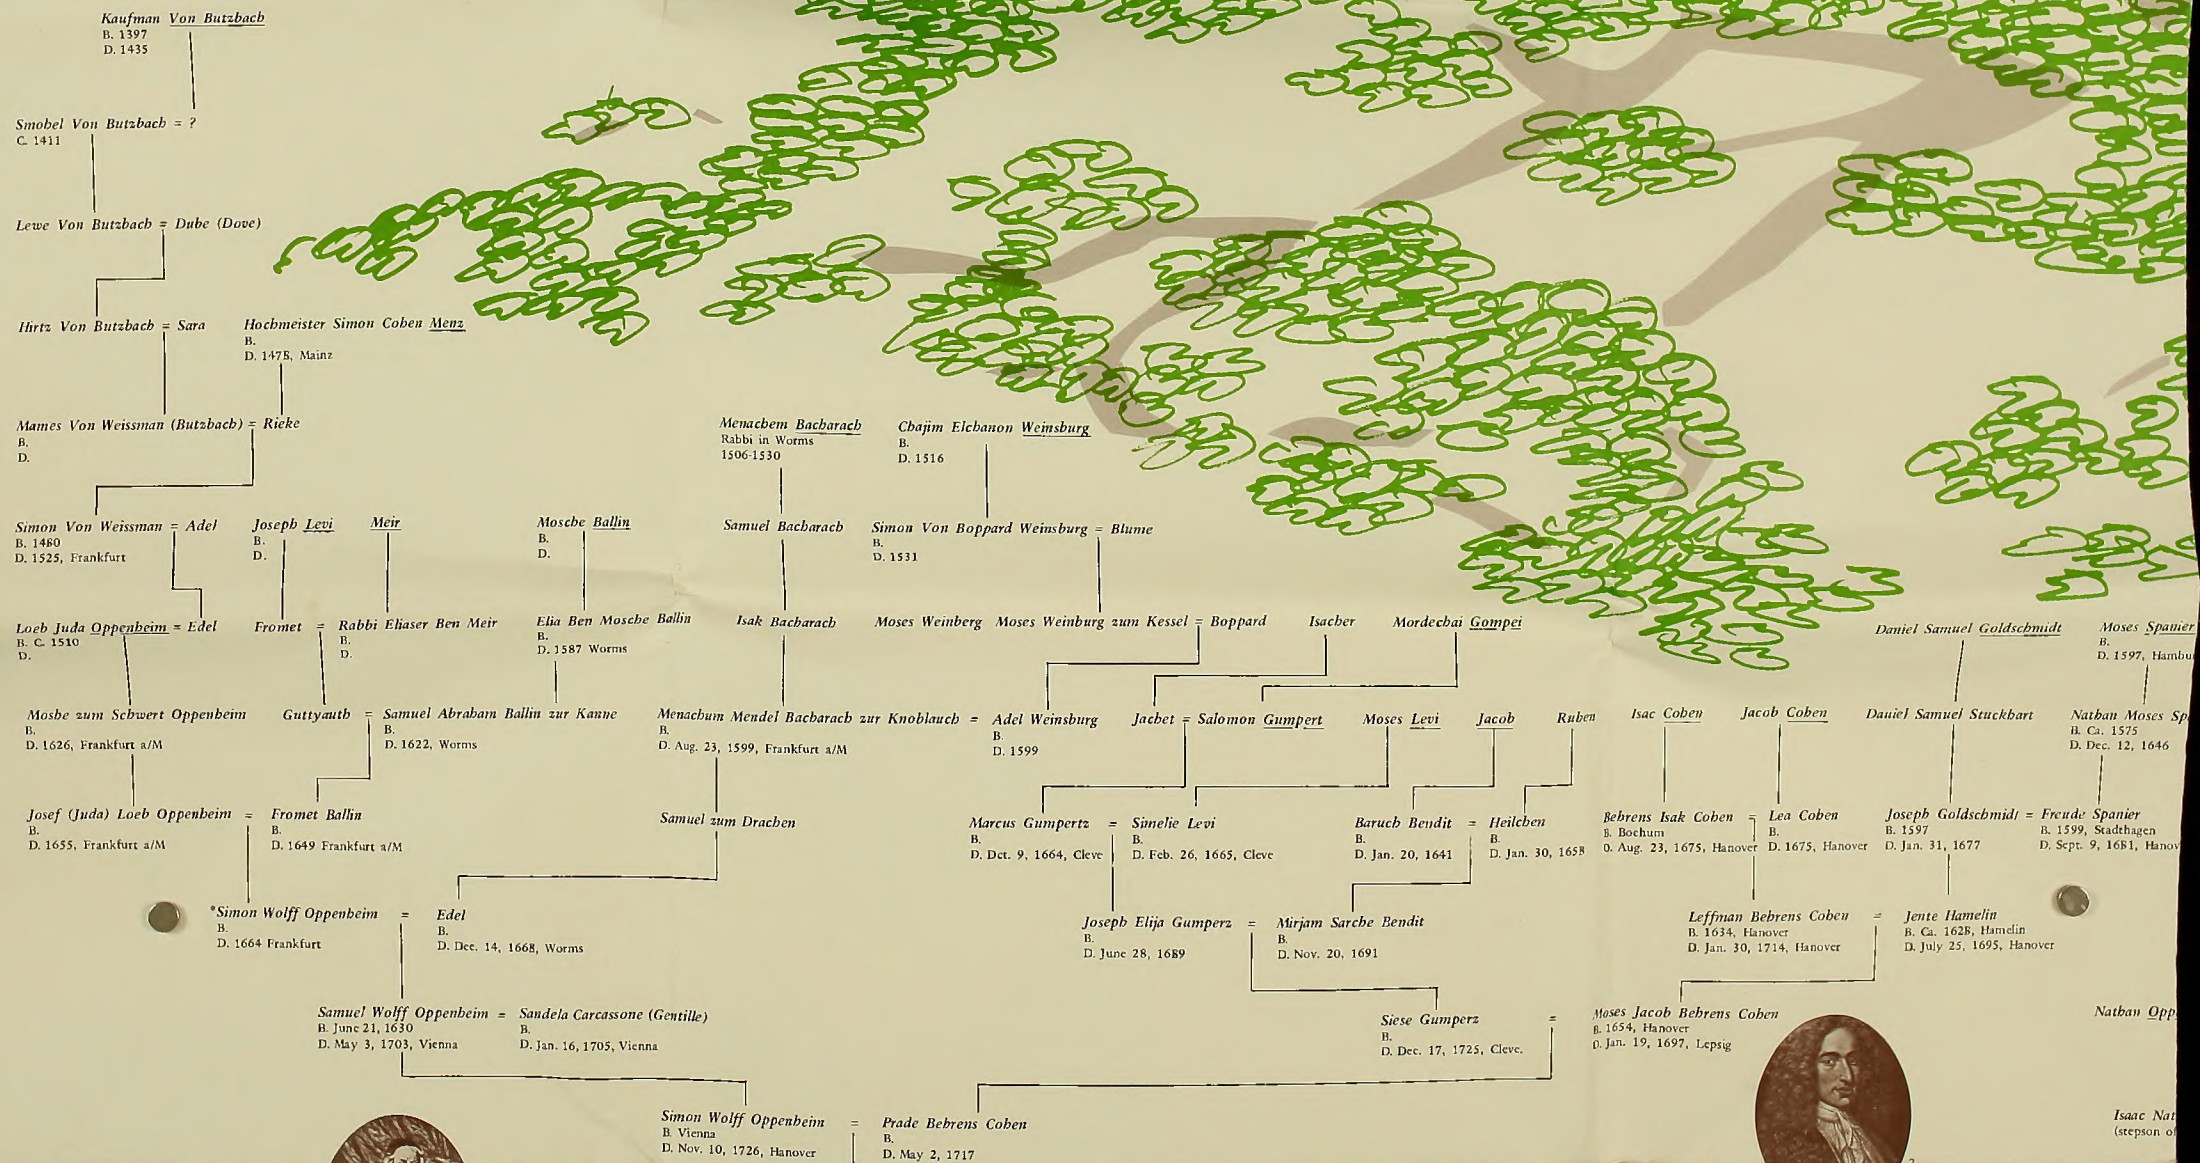 Kaufman Von Butzbach
B. 1397
D. 1435
Smobel Von Butzbach = ?
C. 1411
Lewe Von Butzbach = Dube (Dove)
Hirtz Von Butzbach = Sara
Hochmeister Simon Cohen Menz
B.
D. 1478, Mainz
Mames Von Weissman (Butzbach) = Rieke
B.
D.
Menachem Bacharach
Rabbi in Worms
1506-1530
Chajim Elchanon Weinsburg
B.
D. 1516
Simon Von Weissman = Adel
B. 1480
D. 1525, Frankfurt
Joseph Levi
B.
D.
Meir
Mosche Ballin
B.
D.
Samuel Bacharach
Simon Von Boppard Weinsburg = Blume
B.
D. 1531
Loeb Juda Oppenheim = Edel
B. C. 1510
D.
Fromet = Rabbi Eliaser Ben Meir
B.
D.
Elia Ben Mosche Ballin
B.
D. 1587 Worms
Isak Bacharach
Moses Weinberg
Moses Weinburg zum Kessel = Boppard
Isacher
Mordechai Gompei
Daniel Samuel Goldschmidt
Moses Spanier
B.
D. 1597, Hambu
Moshe zum Schwert Oppenheim
B.
D. 1626, Frankfurt a/M
Guttyauth = Samuel Abraham Ballin zur Kanne
B.
D. 1622, Worms
Menachum Mendel Bacharach zur Knoblauch = Adel Weinsburg
B.
D. Aug. 23, 1599, Frankfurt a/M
B.
D. 1599
Jachet = Salomon Gumpert
Moses Levi
Jacob
Ruben
Isac Cohen
Jacob Cohen
Daniel Samuel Stuckhart
Nathan Moses Sp
B. Ca. 1575
D. Dec. 12, 1646
Josef (Juda) Loeb Oppenheim = Fromet Ballin
B.
D. 1655, Frankfurt a/M
B.
D. 1649 Frankfurt a/M
Samuel zum Drachen
Marcus Gumpertz = Simelie Levi
B.
D. Oct. 9, 1664, Cleve
B.
D. Feb. 26, 1665, Cleve
Baruch Bendit = Heilchen
B.
D. Jan. 20, 1641
B.
D. Jan. 30, 1658
Behrens Isak Cohen = Lea Cohen
B. Bochum
D. Aug. 23, 1675, Hanover
B.
D. 1675, Hanover
Joseph Goldschmidt = Freude Spanier
B. 1597
D. Jan. 31, 1677
B. 1599, Stadthagen
D. Sept. 9, 1681, Hanov
*Simon Wolff Oppenheim = Edel
B.
D. 1664 Frankfurt
B.
D. Dec. 14, 1668, Worms
Joseph Elija Gumperz = Mirjam Sarche Bendit
B.
D. June 28, 1689
B.
D. Nov. 20, 1691
Leffman Behrens Cohen = Jente Hamelin
B. 1634, Hanover
D. Jan. 30, 1714, Hanover
B. Ca. 1628, Hamelin
D. July 25, 1695, Hanover
Samuel Wolff Oppenheim = Sandela Carcassone (Gentille)
B. June 21, 1630
D. May 3, 1703, Vienna
B.
D. Jan. 16, 1705, Vienna
Siese Gumperz = Moses Jacob Behrens Cohen
B.
D. Dec. 17, 1725, Cleve.
B. 1654, Hanover
D. Jan. 19, 1697, Lepsig
Nathan Opp
Simon Wolff Oppenheim = Prade Behrens Cohen
B. Vienna
D. Nov. 10, 1726, Hanover
B.
D. May 2, 1717
Isaac Nat
(stepson of